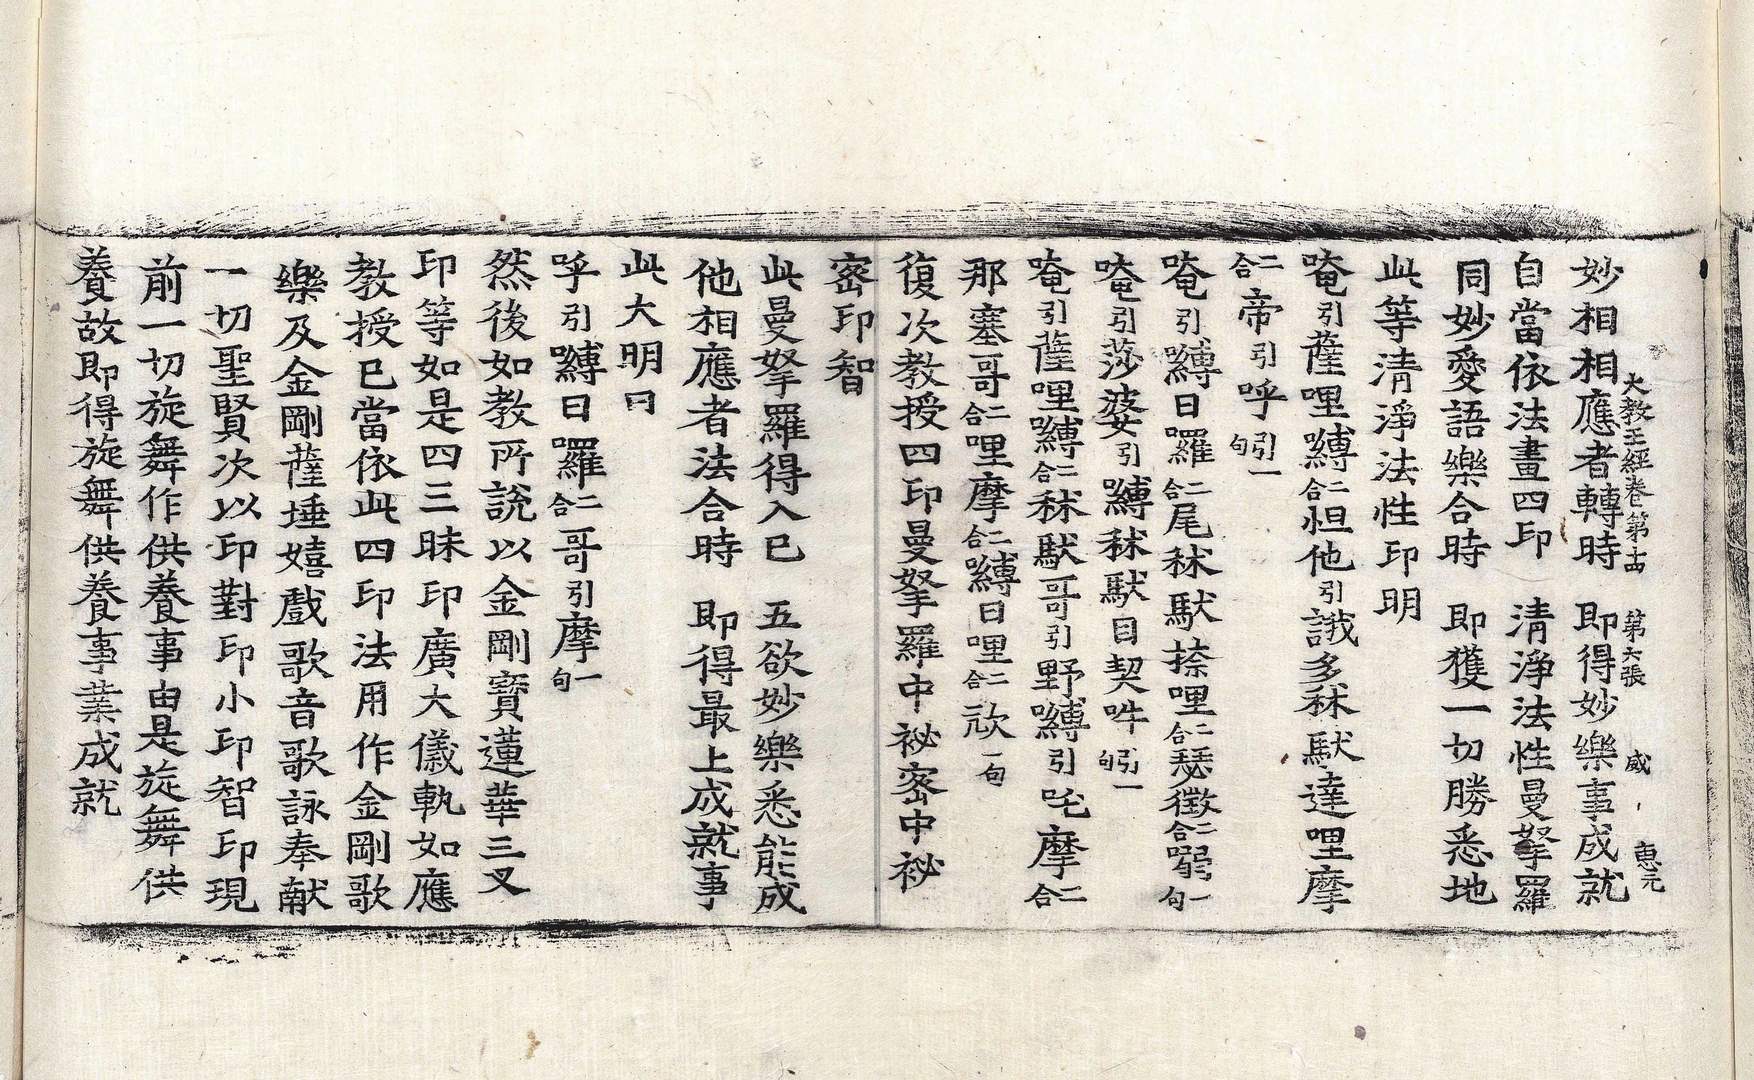 大教王經卷第十四 第六張 威 惠元
妙相相應者轉時 即得妙樂事成就
自當依法畫四印 清淨法性曼拏羅
同妙愛語樂合時 即獲一切勝悉地
此等清淨法性印明
唵引薩哩嚩二合怛他引誐多秫馱達哩摩
二合帝引呼引一句
唵引嚩日囉二合尾秫馱捺哩二合瑟徵二合弱一句
唵引莎婆引嚩秫馱目契吽引一句
唵引薩哩嚩二合秫馱哥引野嚩引吃摩二合
那塞哥二合哩摩二合嚩日哩二合㰠一句
復次教授四印曼拏羅中祕密中祕
密印智
此曼拏羅得入已 五欲妙樂悉能成
他相應者法合時 即得最上成就事
此大明曰
呼引嚩日囉二合哥引摩一句
然後如教所說以金剛寶蓮華三叉
印等如是四三昧印廣大儀軌如應
教授已當依此四印法用作金剛歌
樂及金剛薩埵嬉戲歌音歌詠奉献
一切聖賢次以印對印小印智印現
前一切旋舞作供養事由是旋舞供
養故即得旋舞供養事業成就